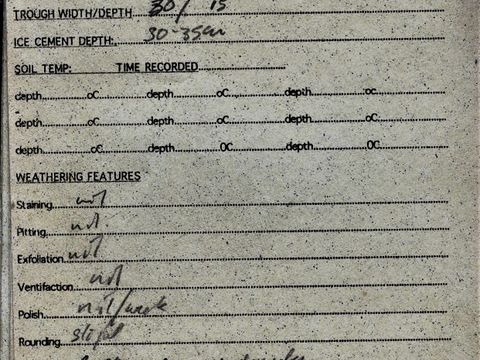 TROUGH WIDTH/DEPTH 30 / 15
ICE CEMENT DEPTH: 30-35cm
SOIL TEMP: TIME RECORDED
depth oC depth oC depth oc
depth oC depth oC depth oC
depth oC depth OC depth OC
WEATHERING FEATURES
Staining nil
Pitting nil
Exfoliation nil
Ventifaction nil
Polish nil/weak
Rounding